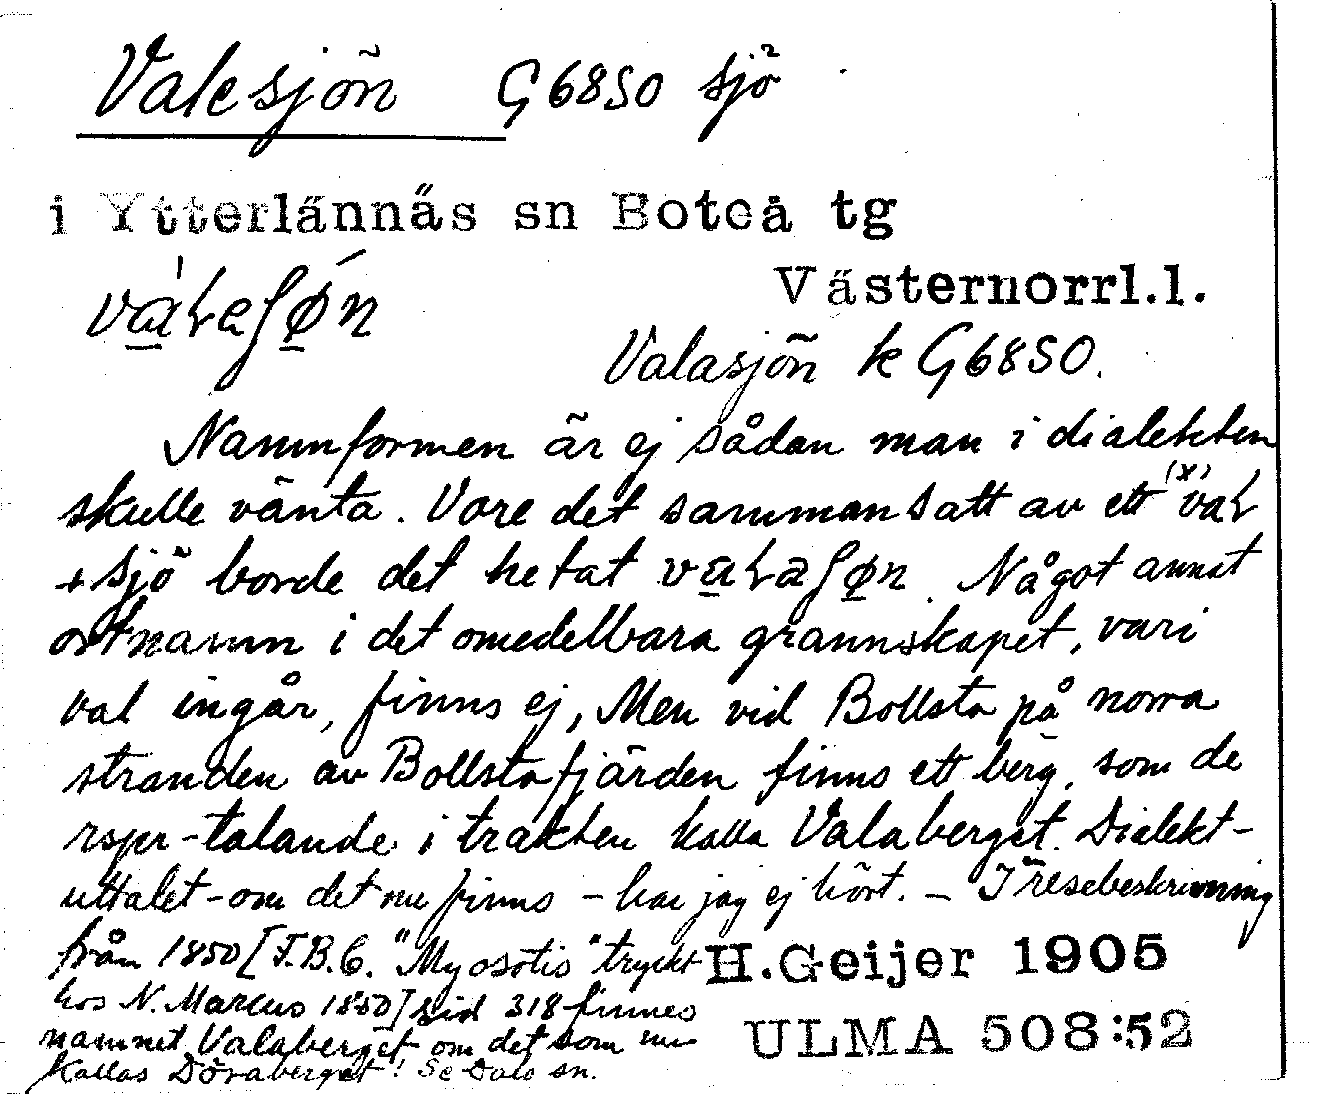 Valesjön G6850 sjö
i Ytterlännäs sn Boteå tg
Västernorrl.l.
Valasjön k G6850.
Namnformen är ej sådan man i dialekten
skulle vänta. Vore det sammansatt av ett (x) val
+ sjö borde det hetat Något annat
ortnamn i det omedelbara grannskapet, vari
val ingår, finns ej, Men vid Bollsta på norra
stranden av Bollstafjärden finns ett berg, som de
rspr-talande i trakten kalla Valaberget. Dialekt-
uttalet - om det nu finns - har jag ej hört. - I resebeskrivning
från 1850 [F.B.C. "Myosotis" tryckt
hos N. Marcus 1850] sid 318 finnes
namnet Valaberget om det som nu
kallas Döraberget! Se Dals sn.
H.Geijer 1905
ULMA 508:52